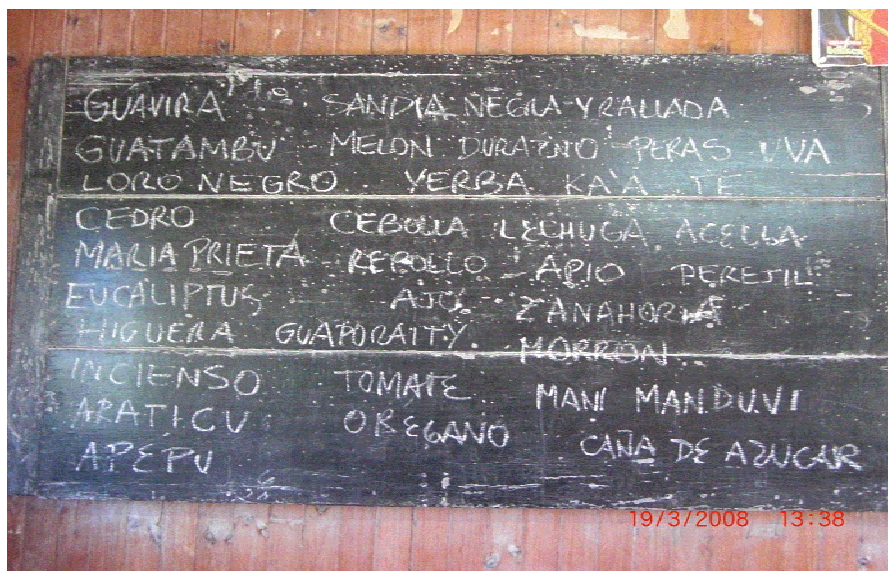 GUAVIRA SANDIA NEGRA Y RALLADA
GUATAMBU MELON DURAZNO PERAS UVA
LORO NEGRO YERBA KA'A TE
CEDRO CEBOLLA LECHUGA ACELLA
MARIA PRIETA REBOLLO APIO PEREJIL
EUCALIPTUS AJO ZANAHORIA
HIGUERA GUAPORAITY MORRON
INCIENSO TOMATE MANI MANDUVI
ARATICU OREGANO CAÑA DE AZUCAR
APEPU
19/3/2008 13:38